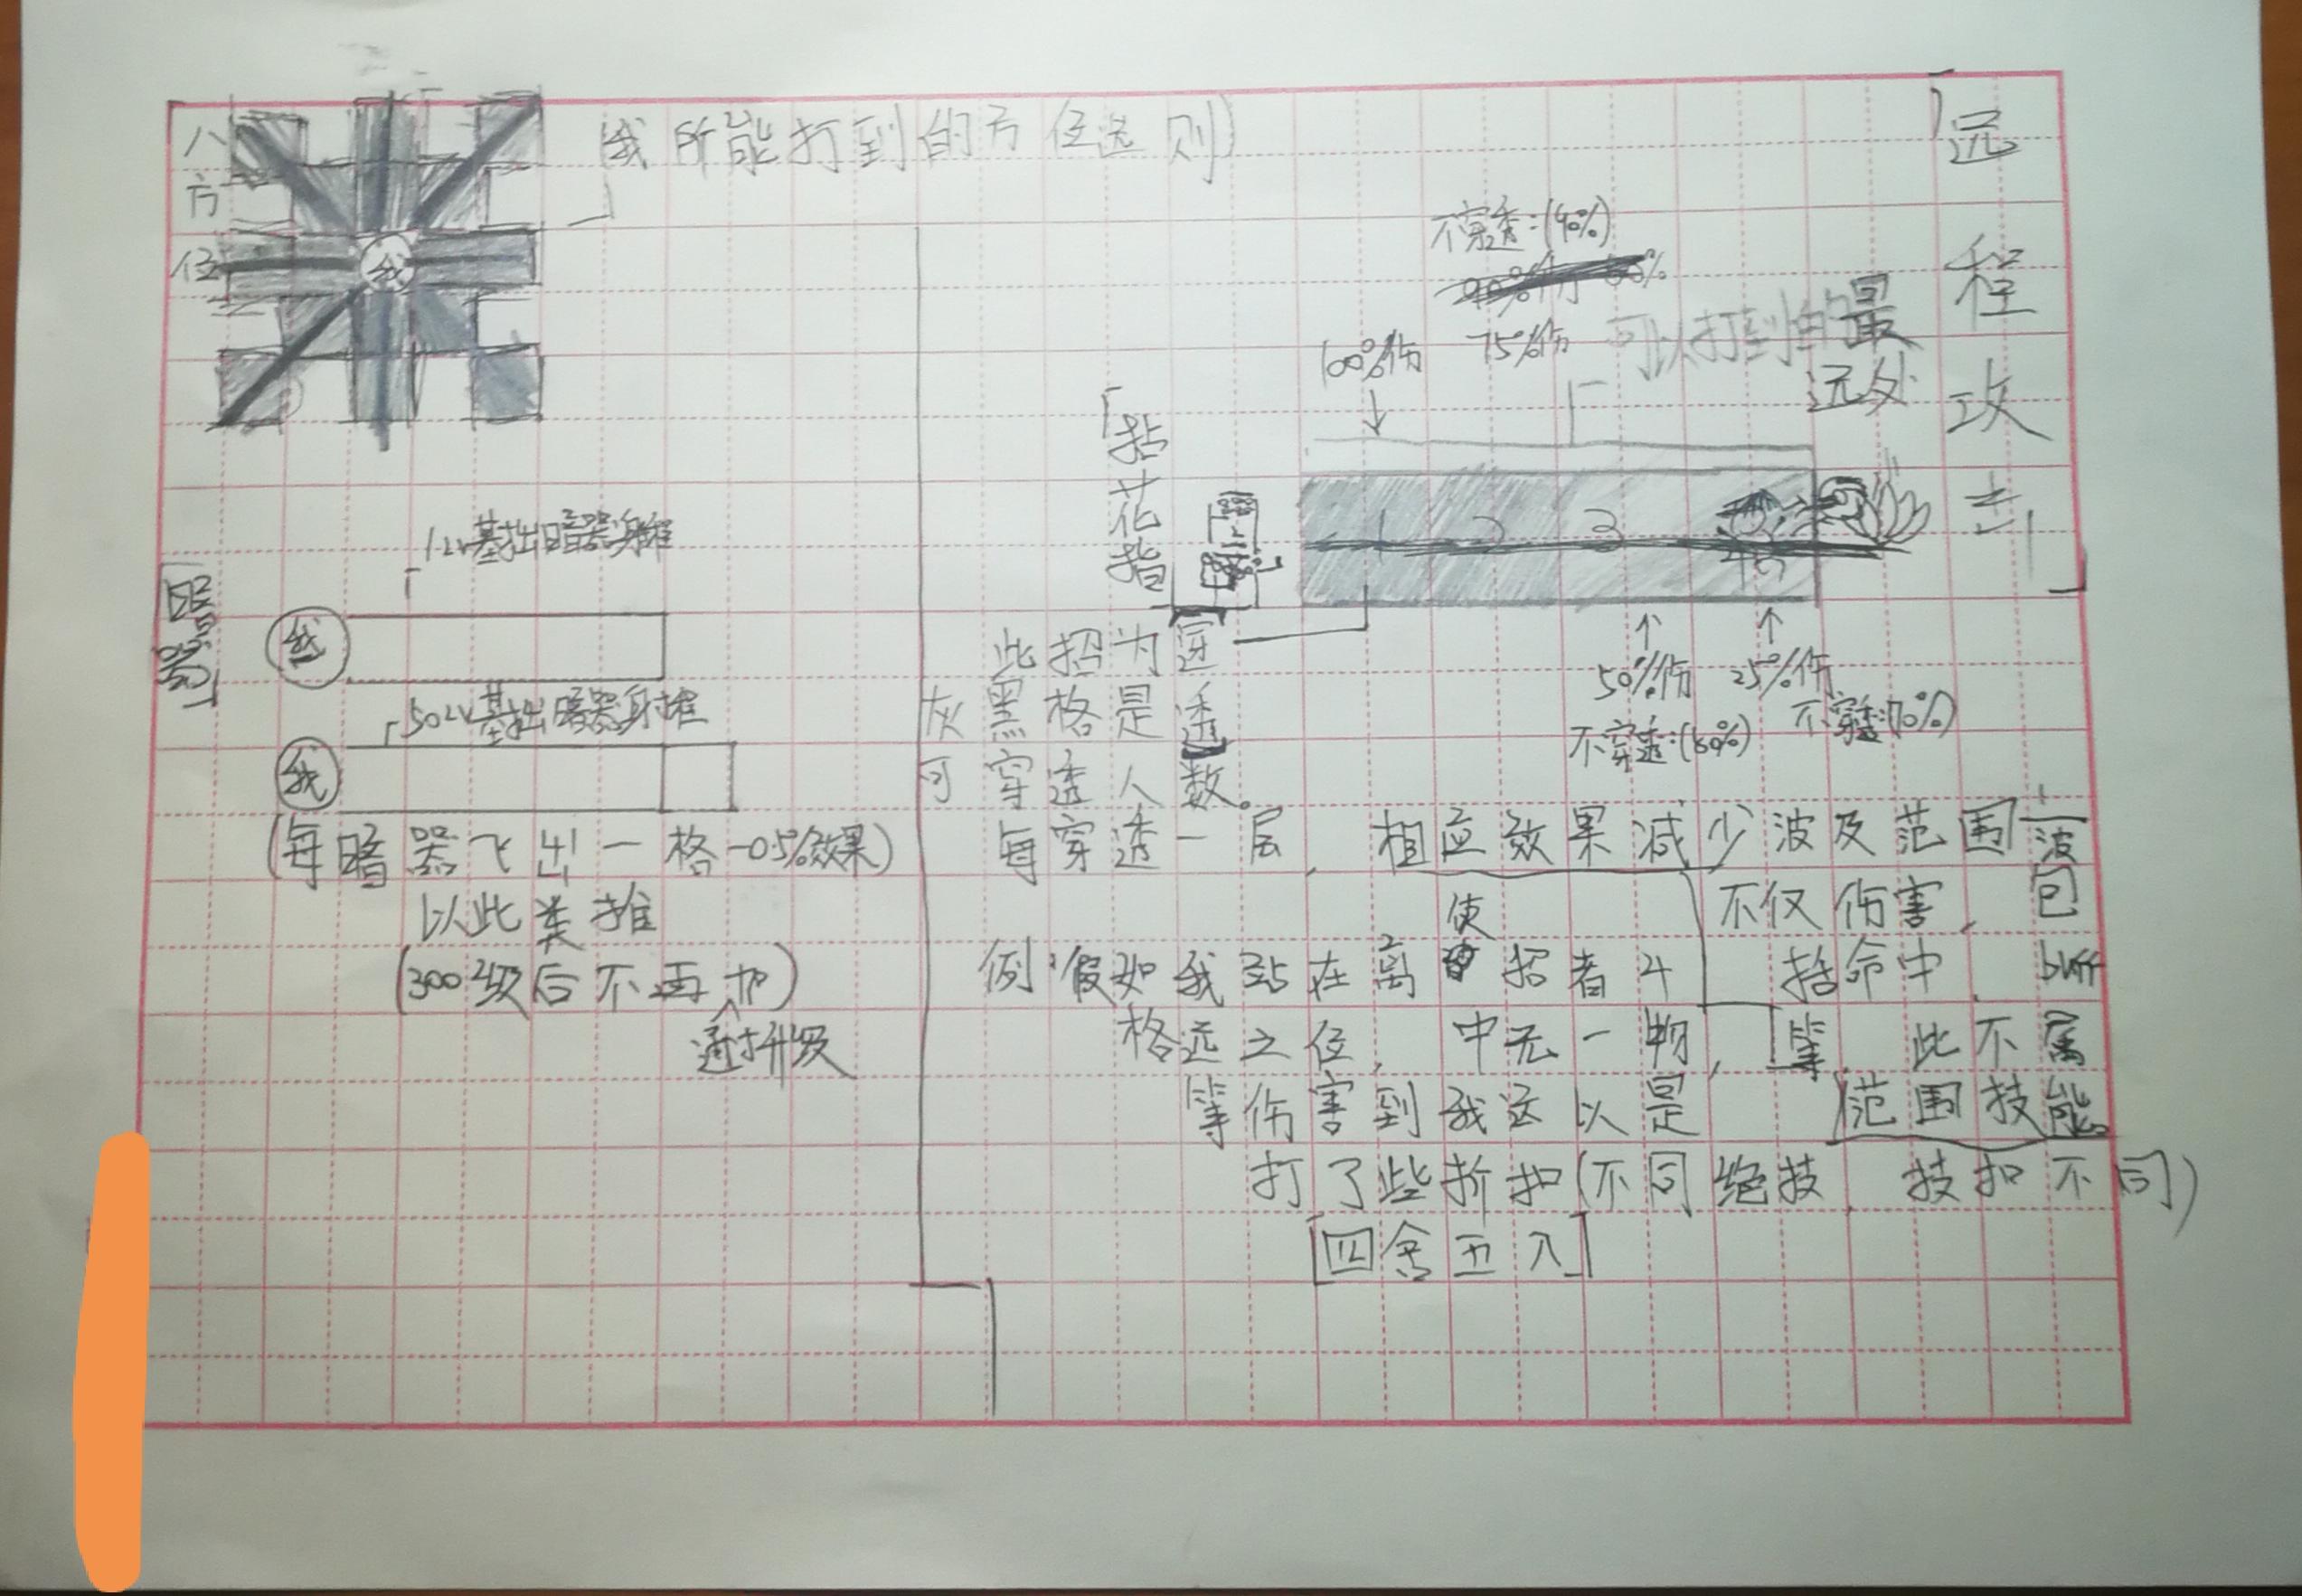 「远程攻击」
八方位
我
我所能打到的方位选则)
不穿透:(40%)
100%伤
75%伤
可以打到的最
远处
「拈花指」
1 2 3
50%伤
25%伤
不穿透:(60%)
不穿透:(70%)
此招为穿透
灰黑格是
可穿透人数。
每穿透一层,相应效果减少波及范围
不仅伤害,包
括命中,buff
等,此不属
范围技能。
例:假如我站在离使招者4
格远之位,中无一物,
等伤害到我这以是
打了些折扣(不同绝技,技扣不同)
[四舍五入]
「暗器」
1Lv基拙暗器身推
我
50Lv基拙暗器身推
我
(每暗器飞出一格-0.5%效果)
以此类推
(300级后不再加)
通过升级